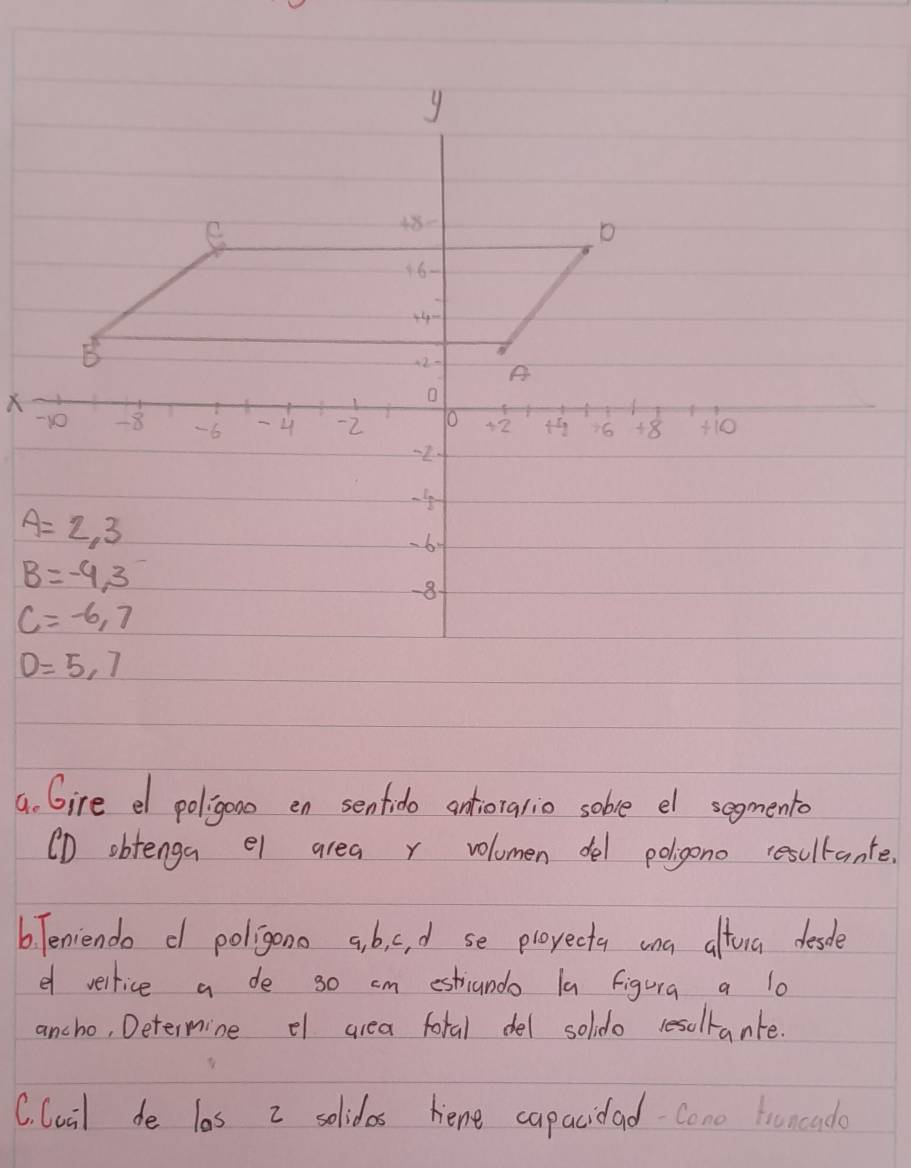 y
C +8 D
+6
+4
B +2 A
x 0
-10 -8 -6 -4 -2 0 +2 +4 +6 +8 +10
-2
-4
A= 2,3
-6
B=-9,3
-8
C=-6,7
D=5,7
a. Gire el polígono en sentido antiorario sobre el segmento
CD obtenga el area y volumen del poligono resultante.
b. Teniendo el polígono a,b,c,d se proyecta una altura desde
el vertice a de 30 cm estirando la figura a lo
ancho, Determine el area total del solido resultante.
C. Cuál de los 2 solidos tiene capacidad - Cono truncado